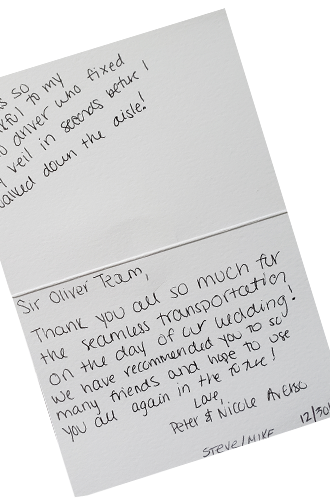 s so
ful to my
o driver who fixed
veil in seconds before I
walked down the aisle!
Sir Oliver Team,
Thank you all so much for
the seamless transportation
on the day of our wedding!
we have recommended you to so
many friends and hope to use
you all again in the future!
Love,
Peter & Nicole Averso
STEVE/MIKE 12/30